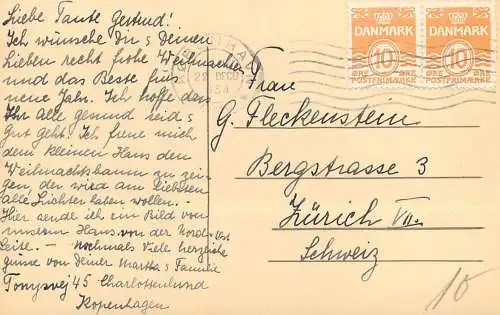 Liebe Tante Gertrud!
Ich wünsche Dir & Deinen
Lieben recht frohe Weihnachten
und das Beste fürs
neue Jahr. Ich hoffe dass
Ihr alle gesund seid &
Gut geht. Ich freue mich
dem kleinen Hans den
Weihnachtsbaum zu zei-
gen, der wird am liebsten
alle Lichter haben wollen. -
Hier sende ich ein Bild von
unserm Hans. von der Nord-
Seite. - Nochmals Viele herzliche
grüsse von Deiner Martha & Familie
Tonysvej 45 Charlottenlund
Kopenhagen
22 DEC
DANMARK
10
ØRE ØRE
POSTFRIMÆRKE
DANMARK
10
ØRE ØRE
POSTFRIMÆRKE
Frau
G. Fleckenstein
Bergstrasse 3
Zürich VII.
Schweiz
10